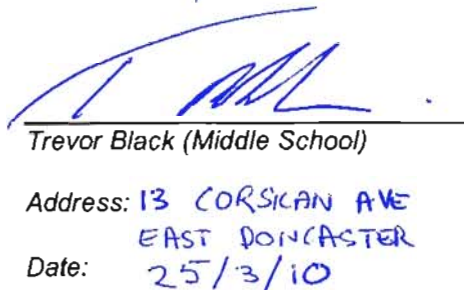 Trevor Black (Middle School)
Address: 13 CORSICAN AVE
EAST DONCASTER
Date: 25/3/10